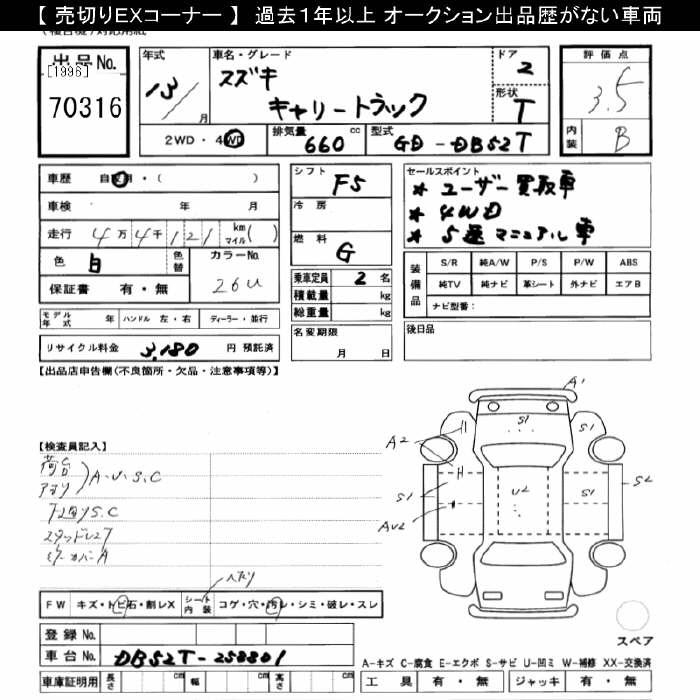 【 売切りEXコーナー 】 過去１年以上 オークション出品歴がない車両
出品No. [1996] 70316
年式 13/ 月
車名・グレード スズキ キャリートラック
ドア 2
形状 T
評価点 3.5
内装 B
2WD・4WD
排気量 660 cc
型式 GD-DB52T
車歴 自家用・( )
車検 年 月
走行 4万4千121 km マイル( )
色 白 色替
カラーNo. 26U
保証書 有・無
モデル年式 年 ハンドル 左・右 ディーラー・並行
リサイクル料金 3,180 円 預託済
シフト F5
冷房
燃料 G
乗車定員 2 名
積載量 kg
総重量 kg
名変期限 月 日
セールスポイント
* ユーザー買取車
* 4WD
* 5速マニュアル車
装備品 S/R 純A/W P/S P/W ABS
純TV 純ナビ 革シート 外ナビ エアB
ナビ型番:
後日品
【出品店申告欄(不良箇所・欠品・注意事項等)】
【検査員記入】
荷台
アオリ A.U.S.C
下回りS.C
スタッドレス7
ミラーカバーA
A1
S1
S1
A2
S1
U2
S1
S2
AU2
スペア
FW キズ・トビ石・割レX シート内装 コゲ・穴・汚レ・シミ・破レ・スレ
ヘタリ
登録No.
車台No. DB52T-258801
車庫証明用 長さ cm 幅 cm 高さ cm
A-キズ C-腐食 E-エクボ S-サビ U-凹ミ W-補修 XX-交換済
工具 有・無 ジャッキ 有・無